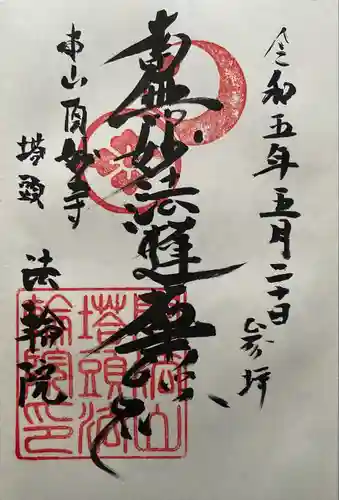 令和五年五月二十日
参拝
南無妙法蓮華経
本山頂妙寺
塔頭
法輪院
塔頭法
輪院印